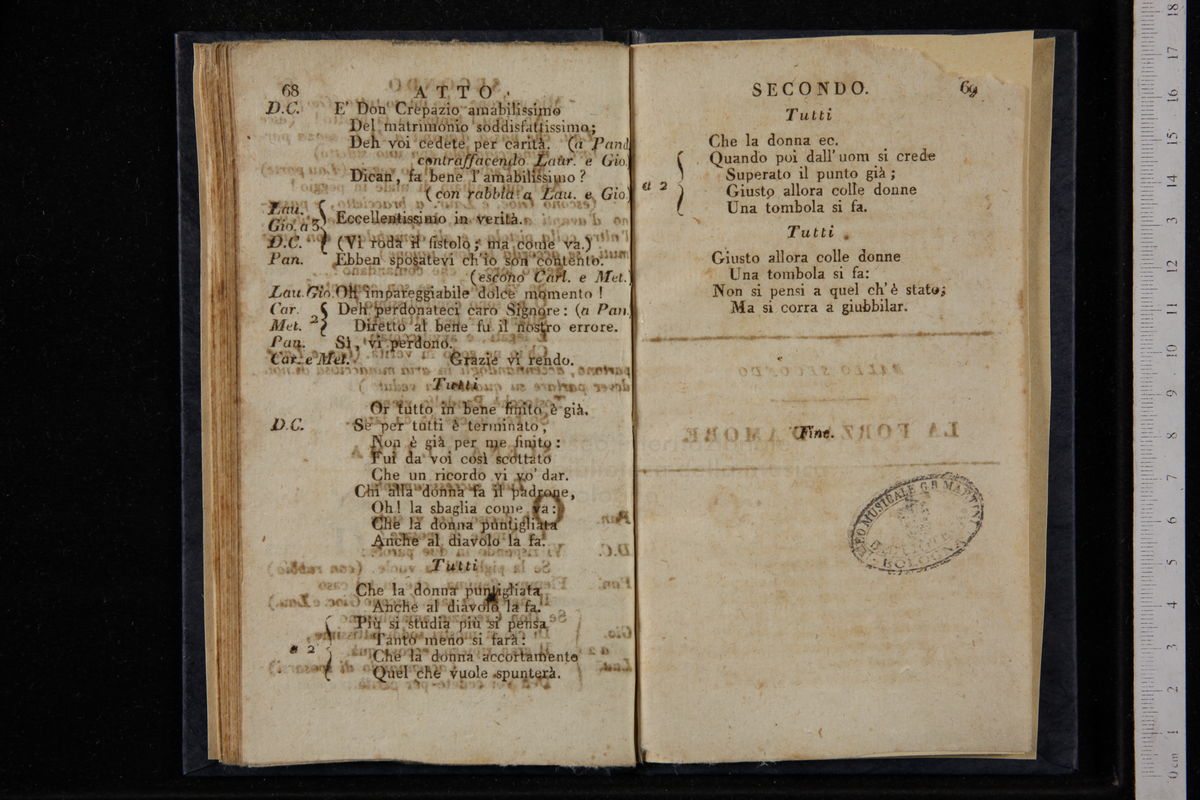 68 ATTO
D.C. E' Don Crepazio amabilissimo
Del matrimonio soddisfattissimo;
Deh voi cedete per carità. (a Pand.
contraffacendo Laur. e Gio.
Dican, fa bene l'amabilissimo?
(con rabbia a Lau. e Gio.)
Lau.
Gio. a 3 Eccellentissimo in verità.
D.C. (Vi roda il fistolo; ma come va.)
Pan. Ebben sposatevi ch'io son contento.
(escono Carl. e Met.)
Lau. Gio. Oh impareggiabile dolce momento!
Car. Deh perdonateci caro Signore: (a Pan.
Met. 2 Diretto al bene fu il nostro errore.
Pan. Sì, vi perdono.
Car. e Met. Grazie vi rendo.
Tutti
Or tutto in bene finito è già.
D.C. Se per tutti è terminato,
Non è già per me finito:
Fui da voi così scottato
Che un ricordo vi vo' dar.
Chi alla donna fa il padrone,
Oh! la sbaglia come va:
Che la donna puntigliata
Anche al diavolo la fa.
Tutti
Che la donna puntigliata
Anche al diavolo la fa.
Più si studia più si pensa
Tanto meno si farà:
a 2 Che la donna accortamente
Quel che vuole spunterà.
SECONDO. 69
Tutti
Che la donna ec.
Quando poi dall'uom si crede
Superato il punto già;
a 2 Giusto allora colle donne
Una tombola si fa.
Tutti
Giusto allora colle donne
Una tombola si fa:
Non si pensi a quel ch'è stato;
Ma si corra a giubbilar.
Fine.
LICEO MUSICALE G.B. MARTINI
BOLOGNA
0 cm 1 2 3 4 5 6 7 8 9 10 11 12 13 14 15 16 17 18